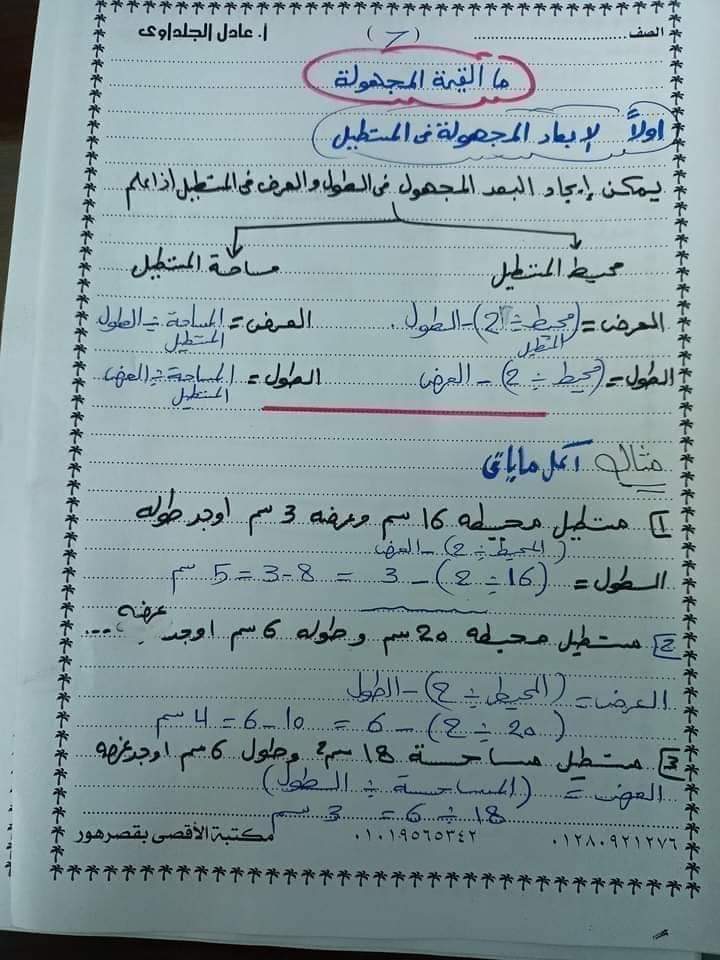 الصف (7) أ. عادل الجلداوى
ما القيمة المجهولة
اولاً الابعاد المجهولة فى المستطيل
يمكن إيجاد البعد المجهول فى الطول والعرض فى المستطيل اذا علم
محيط المستطيل مساحة المستطيل
العرض = (محيط المستطيل ÷ 2) - الطول العرض = المساحة المستطيل ÷ الطول
الطول = (محيط ÷ 2) - العرض الطول = المساحة المستطيل ÷ العرض
مثال أكمل ما يأتى
1 مستطيل محيطه 16 سم وعرضه 3 سم اوجد طوله
(المحيط ÷ 2) - العرض
الطول = (16 ÷ 2) - 3 = 8 - 3 = 5 سم
2 مستطيل محيطه 20 سم وطوله 6 سم اوجد عرضه ...
العرض = (المحيط ÷ 2) - الطول
(20 ÷ 2) - 6 = 10 - 6 = 4 سم
3 مستطيل مساحة 18 سم² وطول 6 سم اوجد عرضه
العرض = (المساحة ÷ الطول)
18 ÷ 6 = 3 سم
٠١٢٨٠٩٢١٢٧٦ ٠١٠١٩٥٦٥٣٤٢ مكتبة الأقصى بقصرهور